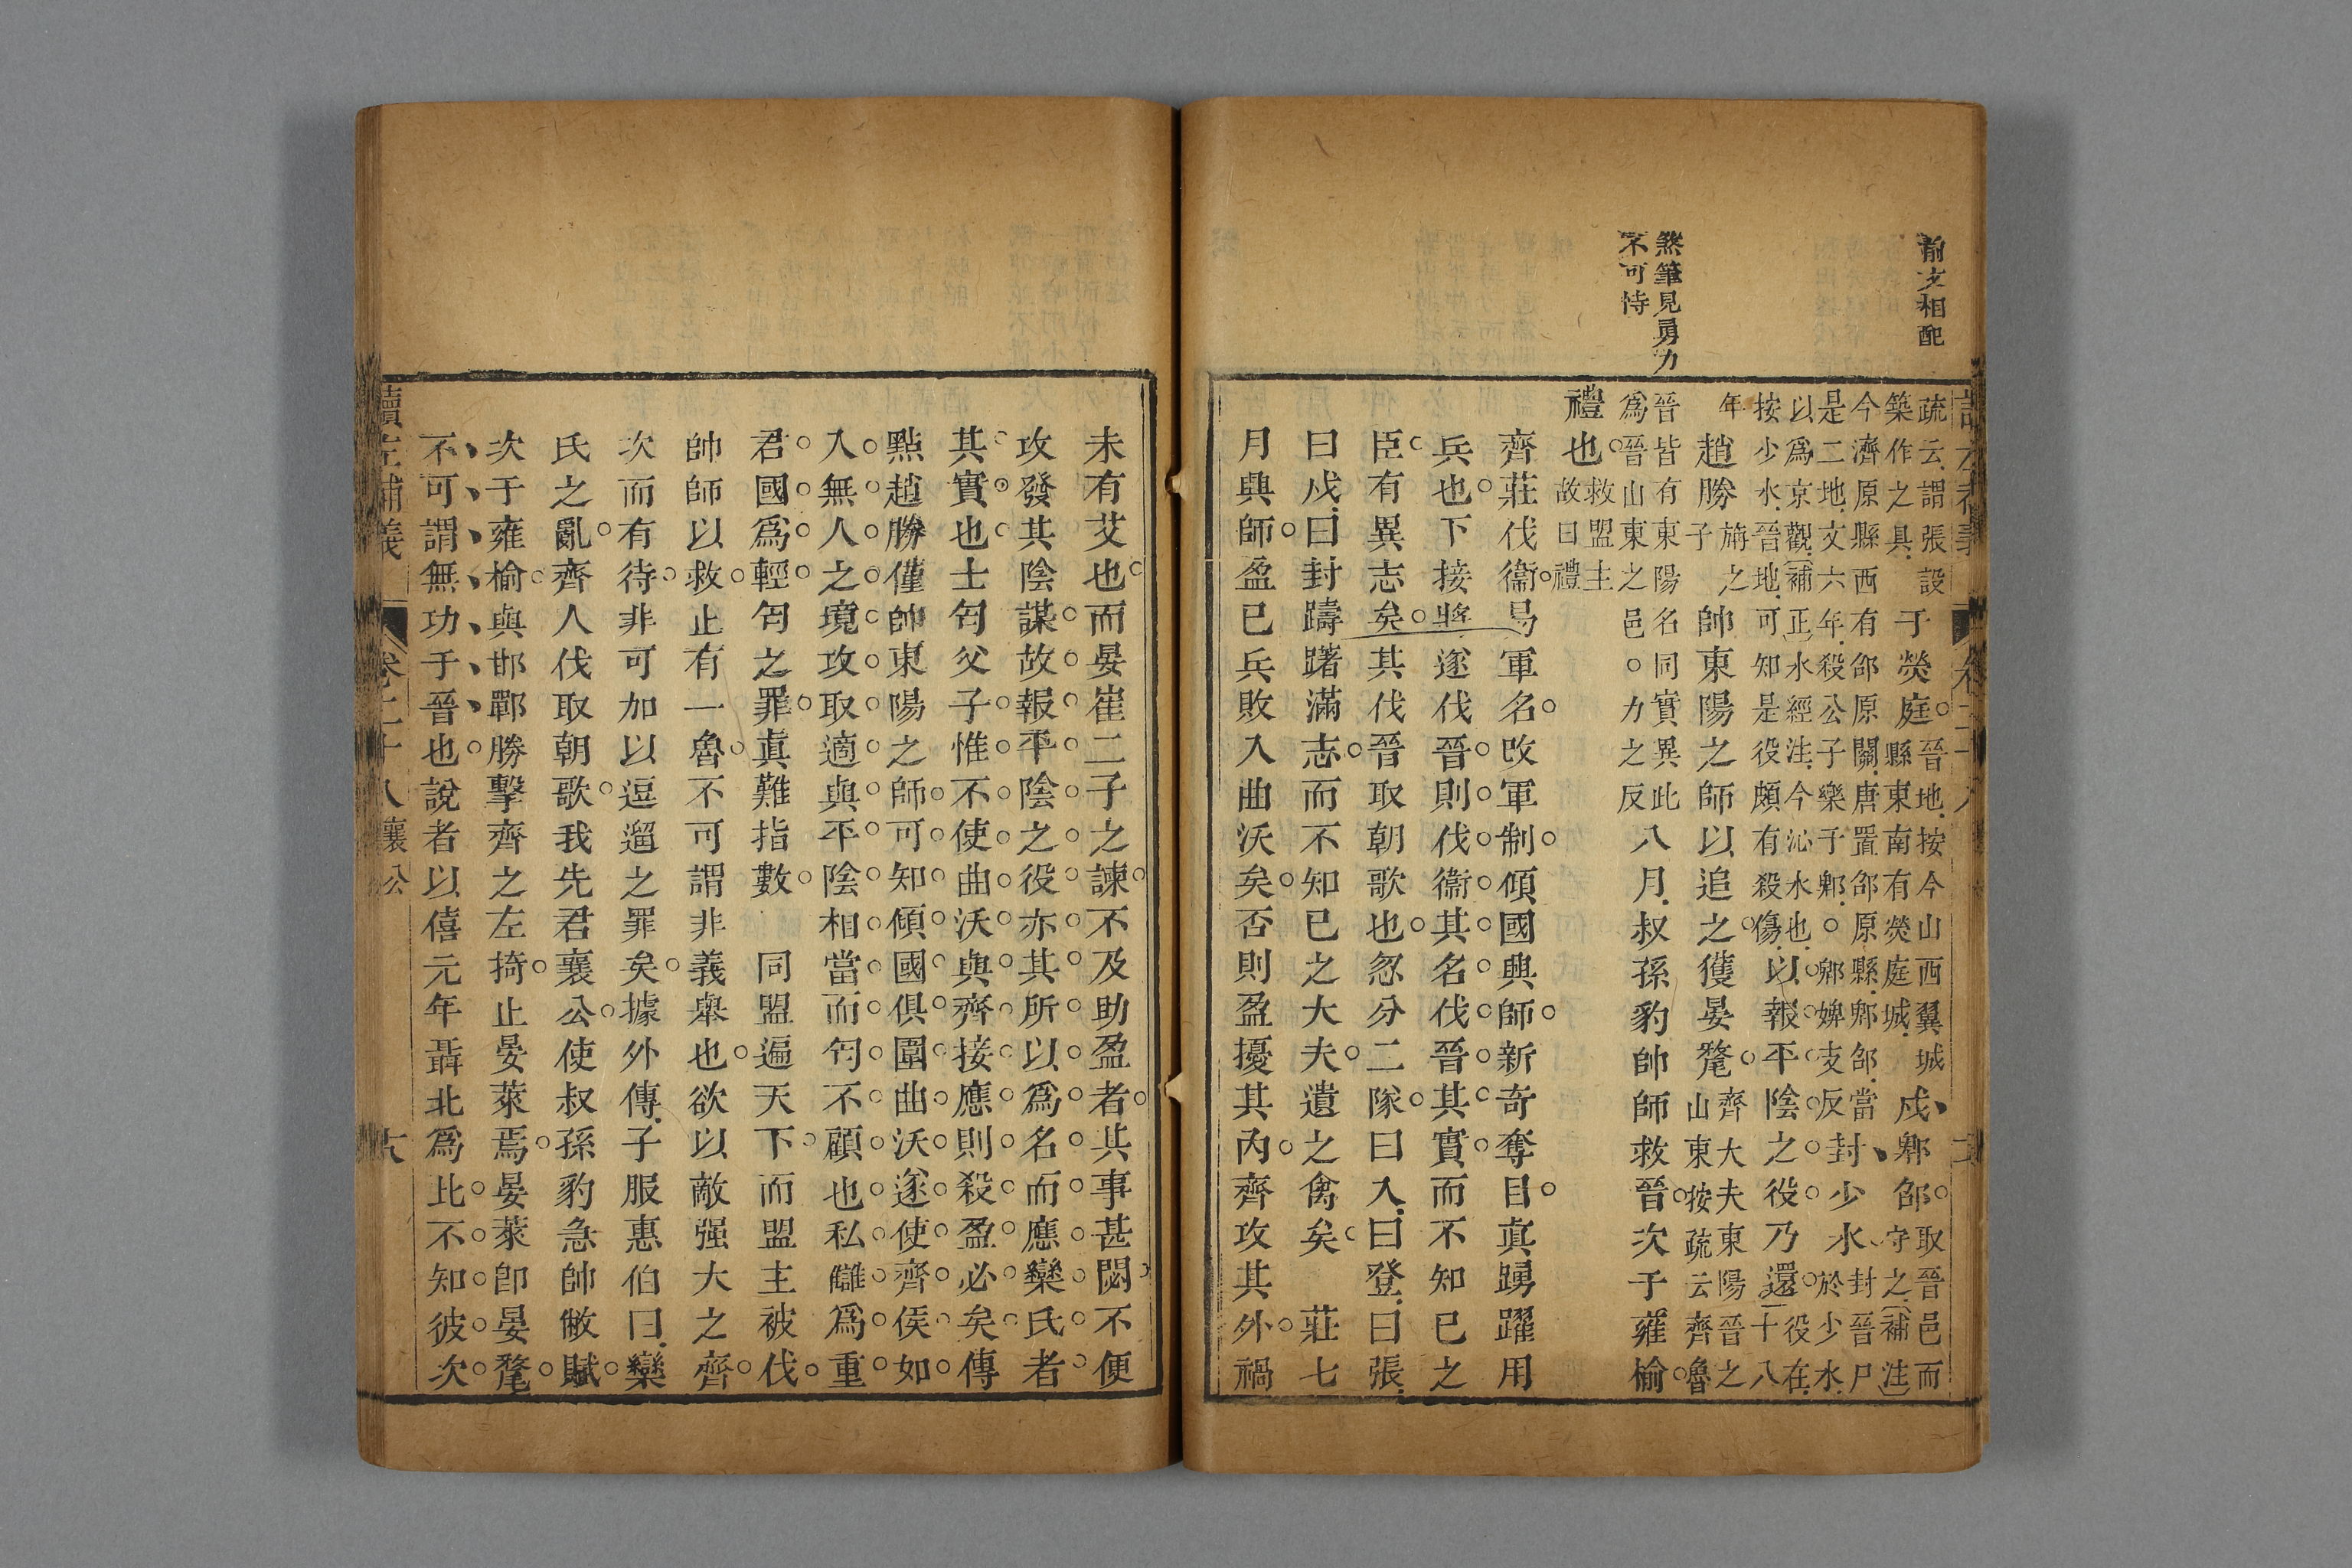 前文相配
煞筆見勇力
不可恃
疏云謂張設
築作之具
于熒庭
晉地按今山西翼城
縣東南有熒庭城
戍郫邵
取晉邑而
守之(補注)
今濟原縣西有邵原關唐置邵原縣郫邵當
是二地文六年殺公子樂于郫○郫婢支反
封少水
封晉尸
於少水
以為京觀(補正)水經注今沁水也
按少水晉地可知是役頗有殺傷
以報平陰之役乃還
役在
十八
年
趙勝
旃之
子
帥東陽之師以追之獲晏氂
齊大夫東陽晉之
山東按疏云齊魯
晉皆有東陽名同實異此
爲晉山東之邑○力之反
八月叔孫豹帥師救晉次于雍榆
禮也
救盟主
故曰禮
齊莊伐衞易軍名改軍制傾國興師新奇奪目真踴躍用
兵也下接將遂伐晉則伐衞其名伐晉其實而不知已之
臣有異志矣其伐晉取朝歌也忽分二隊曰入曰登曰張
曰戍曰封躊躇滿志而不知已之大夫遺之禽矣　莊七
月興師盈已兵敗入曲沃矣否則盈擾其內齊攻其外禍
未有艾也而晏崔二子之諫不及助盈者其事甚閟不便
攻發其陰謀故報平陰之役亦其所以爲名而應欒氏者
其實也士匄父子惟不使曲沃與齊接應則殺盈必矣傳
點趙勝僅帥東陽之師可知傾國俱圍曲沃遂使齊侯如
入無人之境攻取適與平陰相當而匄不顧也私讎爲重
君國爲輕匄之罪真難指數　同盟遍天下而盟主被伐
帥師以救止有一魯不可謂非義舉也欲以敵强大之齊
次而有待非可加以逗遛之罪矣據外傳子服惠伯曰欒
氏之亂齊人伐取朝歌我先君襄公使叔孫豹急帥敝賦
次于雍榆與邯鄲勝擊齊之左掎止晏萊焉晏萊卽晏氂
不可謂無功于晉也說者以僖元年聶北爲比不知彼次
讀左補義
卷二十八
襄公